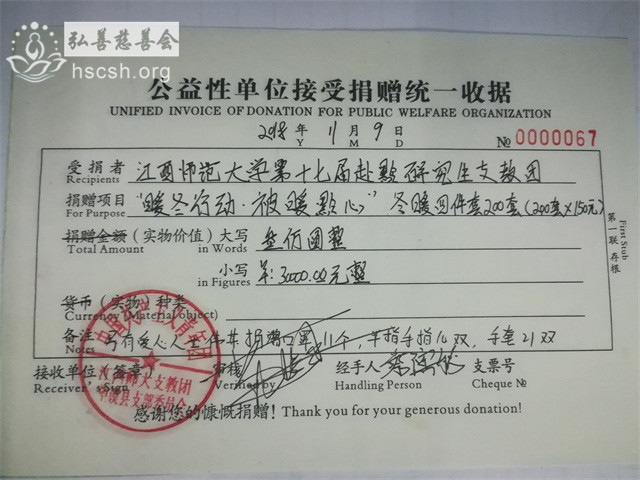 弘善慈善会
hscsh.org
公益性单位接受捐赠统一收据
UNIFIED INVOICE OF DONATION FOR PUBLIC WELFARE ORGANIZATION
2018 年 Y 11 月 M 9 日 D № 0000067
受捐者 Recipients 江西师范大学第十七届赴黔研究生支教团
捐赠项目 For Purpose "暖冬行动·被暖黔心" 冬暖四件套200套(200套×150元)
捐赠金额(实物价值)大写 Total Amount in Words 叁仟圆整
小写 in Figures 羊:30000.00元整
货币(实物)种类 Currency (Material object)
备注 Notes 另有爱心人士 捐赠口罩11个,半指手指 双,手套21双
接收单位(签章) Receiver's Sign 审核 Verified by 经手人 Handling Person 支票号 Cheque №
感谢您的慷慨捐赠! Thank you for your generous donation!
第一联 存根 First Stub
江西师大支教团
县支部委员会